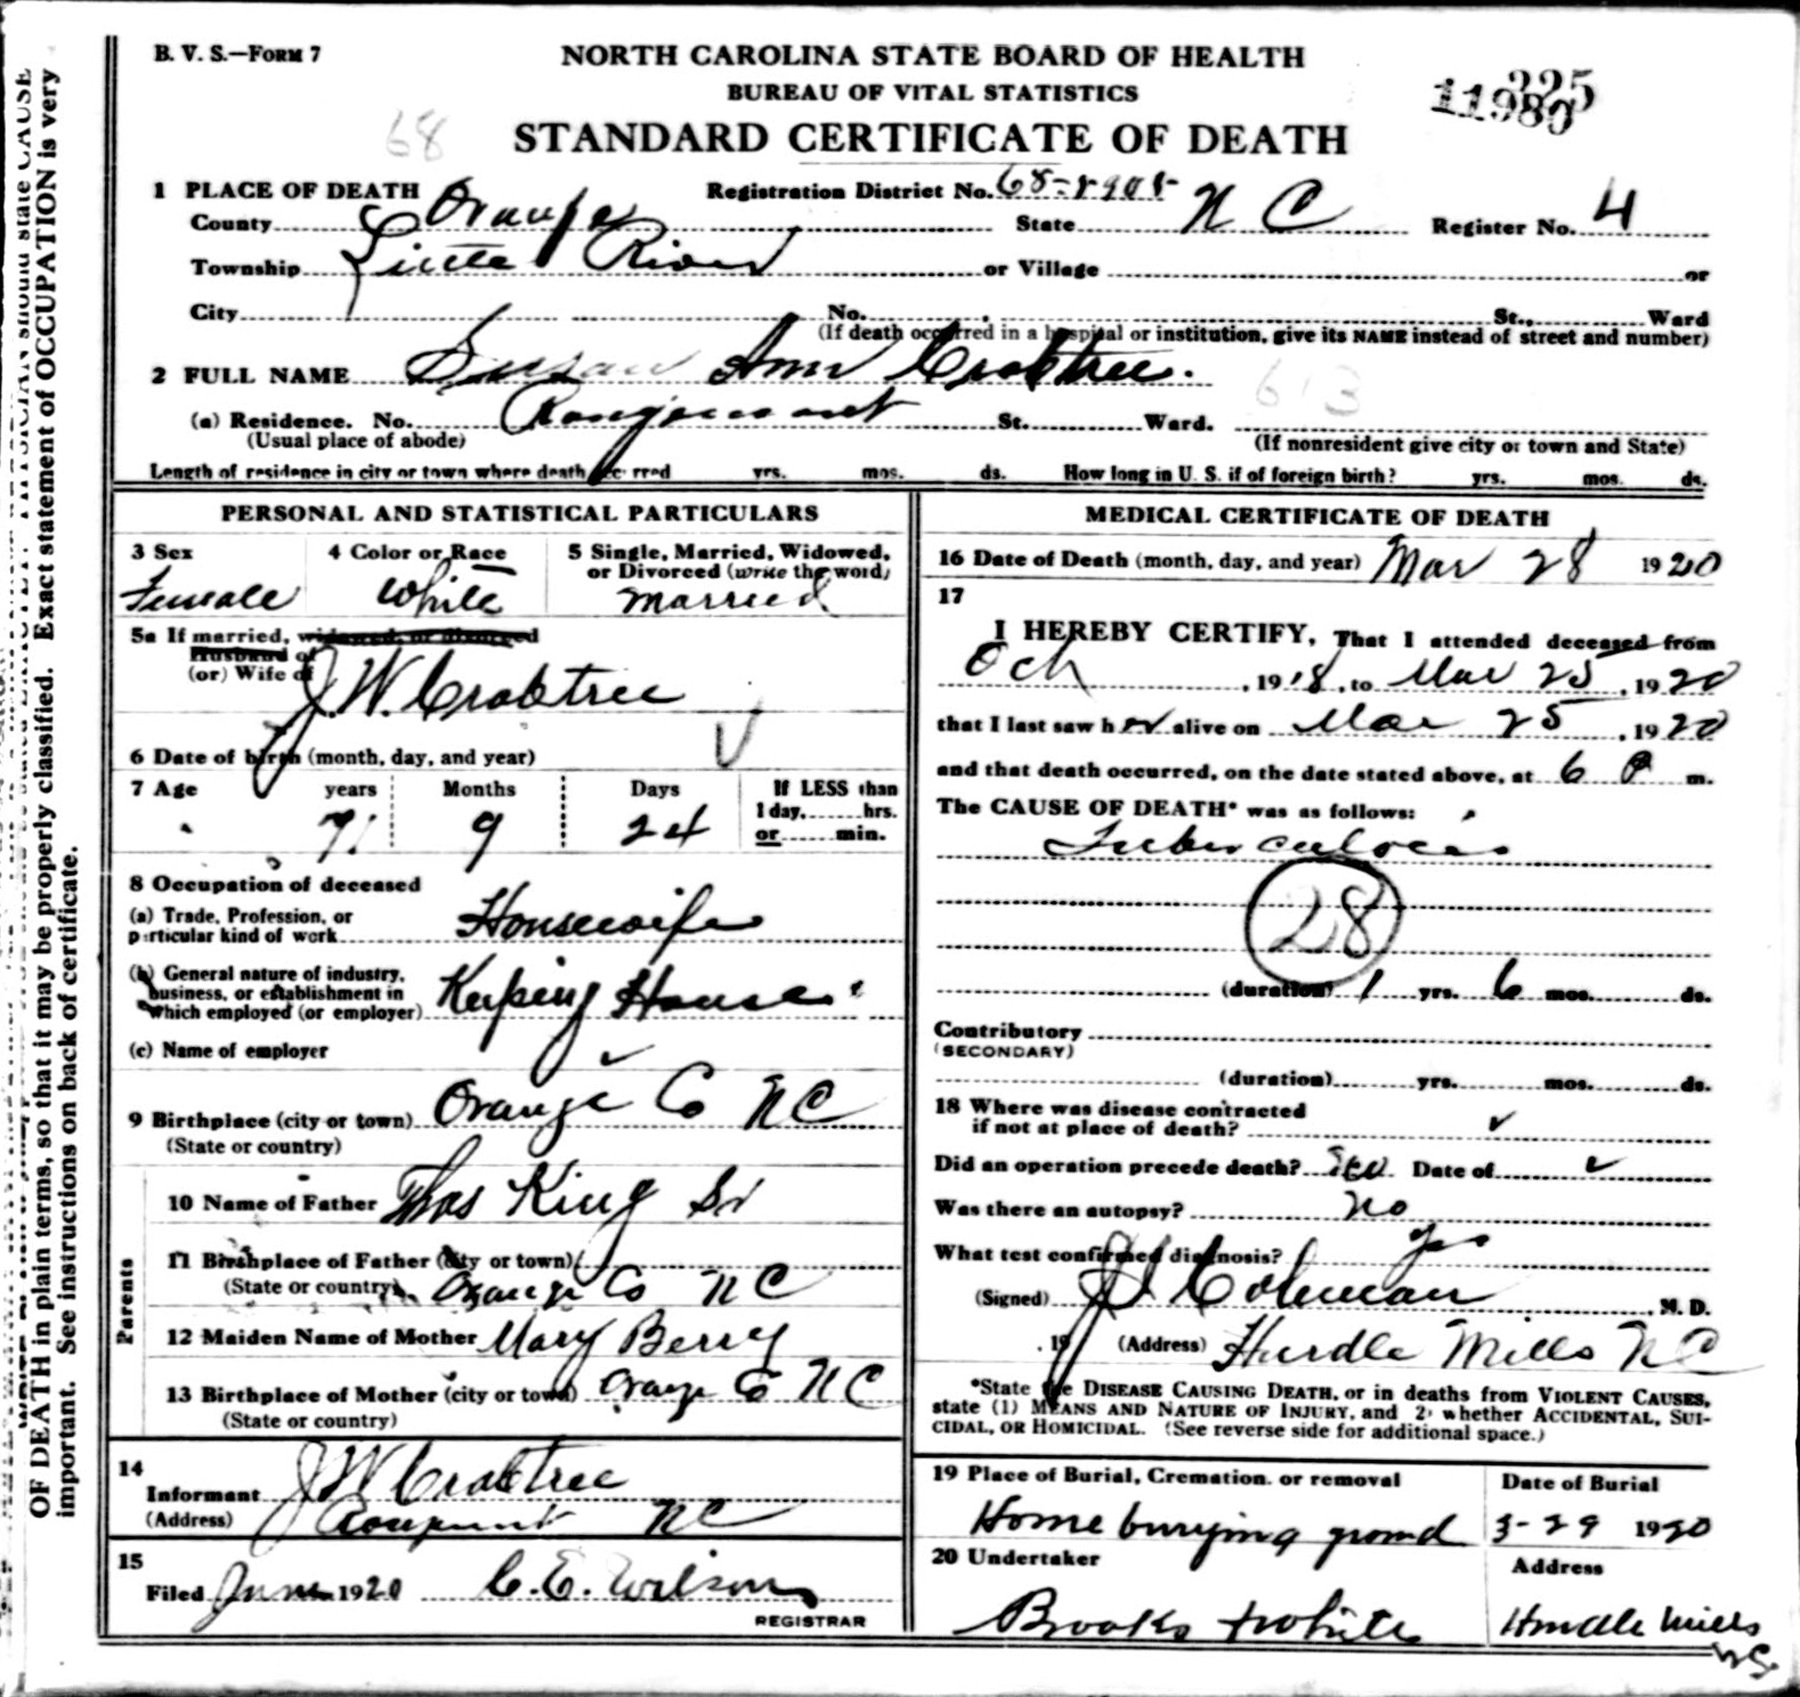 B. V. S.—Form 7
NORTH CAROLINA STATE BOARD OF HEALTH
BUREAU OF VITAL STATISTICS
STANDARD CERTIFICATE OF DEATH
225
11980
68
1 PLACE OF DEATH Registration District No.
County Orange State N C Register No. 4
Township Little River or Village or
City No. St., Ward
(If death occurred in a hospital or institution, give its NAME instead of street and number)
2 FULL NAME Susan Ann Crabtree.
613
(a) Residence. No. Rougemont St. Ward.
(Usual place of abode) (If nonresident give city or town and State)
Length of residence in city or town where death occurred yrs. mos. ds. How long in U. S. if of foreign birth? yrs. mos. ds.
PERSONAL AND STATISTICAL PARTICULARS
3 Sex 4 Color or Race 5 Single, Married, Widowed, or Divorced (write the word)
Female White Married
5a If married, widowed, or divorced
Husband of
(or) Wife of J. W. Crabtree
6 Date of birth (month, day, and year)
7 Age years Months Days If LESS than
1 day, hrs.
or min.
71 9 24
8 Occupation of deceased
(a) Trade, Profession, or
particular kind of work Housewife
(b) General nature of industry,
business, or establishment in
which employed (or employer) Keeping House
(c) Name of employer
9 Birthplace (city or town) Orange Co NC
(State or country)
Parents
10 Name of Father Thos King Sr
11 Birthplace of Father (city or town)
(State or country) Orange Co N C
12 Maiden Name of Mother Mary Berry
13 Birthplace of Mother (city or town) Orange Co N C
(State or country)
14
Informant J W Crabtree
(Address) Rougemont NC
15
Filed June 1920 C. E. Wilson
REGISTRAR
MEDICAL CERTIFICATE OF DEATH
16 Date of Death (month, day, and year) Mar 28 1920
17
I HEREBY CERTIFY, That I attended deceased from
Och, 1918, to Mar 25, 1920
that I last saw her alive on Mar 25, 1920
and that death occurred, on the date stated above, at 6 P m.
The CAUSE OF DEATH* was as follows:
Tuberculosis
28
(duration) 1 yrs. 6 mos. ds.
Contributory
(SECONDARY)
(duration) yrs. mos. ds.
18 Where was disease contracted
if not at place of death?
Did an operation precede death? Date of
Was there an autopsy? no
What test confirmed diagnosis? yes
(Signed) J I Coleman, M. D.
, 19 (Address) Hurdle Mills N C
*State the DISEASE CAUSING DEATH, or in deaths from VIOLENT CAUSES,
state (1) MEANS AND NATURE OF INJURY, and 2) whether ACCIDENTAL, SUI-
CIDAL, OR HOMICIDAL. (See reverse side for additional space.)
19 Place of Burial, Cremation. or removal Date of Burial
Home burying ground 3-29 1920
20 Undertaker Address
Brooks & White Hurdle Mills
NC
OF DEATH in plain terms, so that it may be properly classified. Exact statement of OCCUPATION is very
important. See instructions on back of certificate.